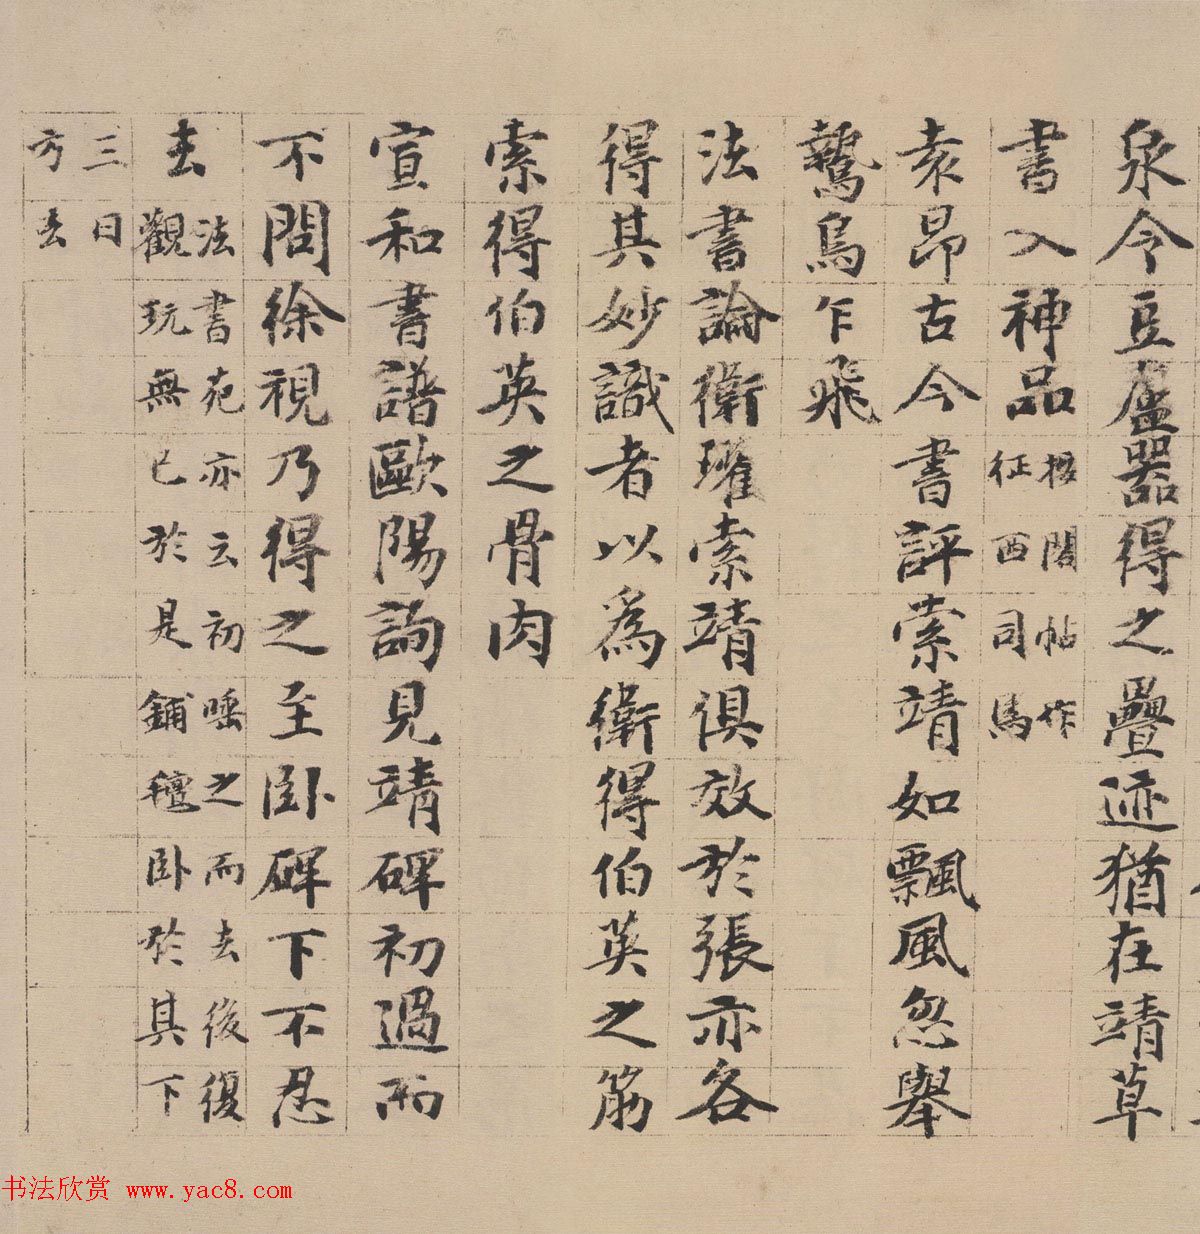 泉令豆盧器得之疊迹猶在靖草
書入神品
閣帖作
征西司馬
袁昂古今書評索靖如飄風忽舉
鷙鳥乍飛
法書論衛瓘索靖俱效於張亦各
得其妙識者以為衛得伯英之筋
索得伯英之骨肉
宣和書譜歐陽詢見靖碑初過而
不問徐視乃得之至臥碑下不忍
去
法書苑亦云初唾之而去後復
觀玩無已於是鋪氈臥於其下
三日
方去
书法欣赏 www.yac8.com